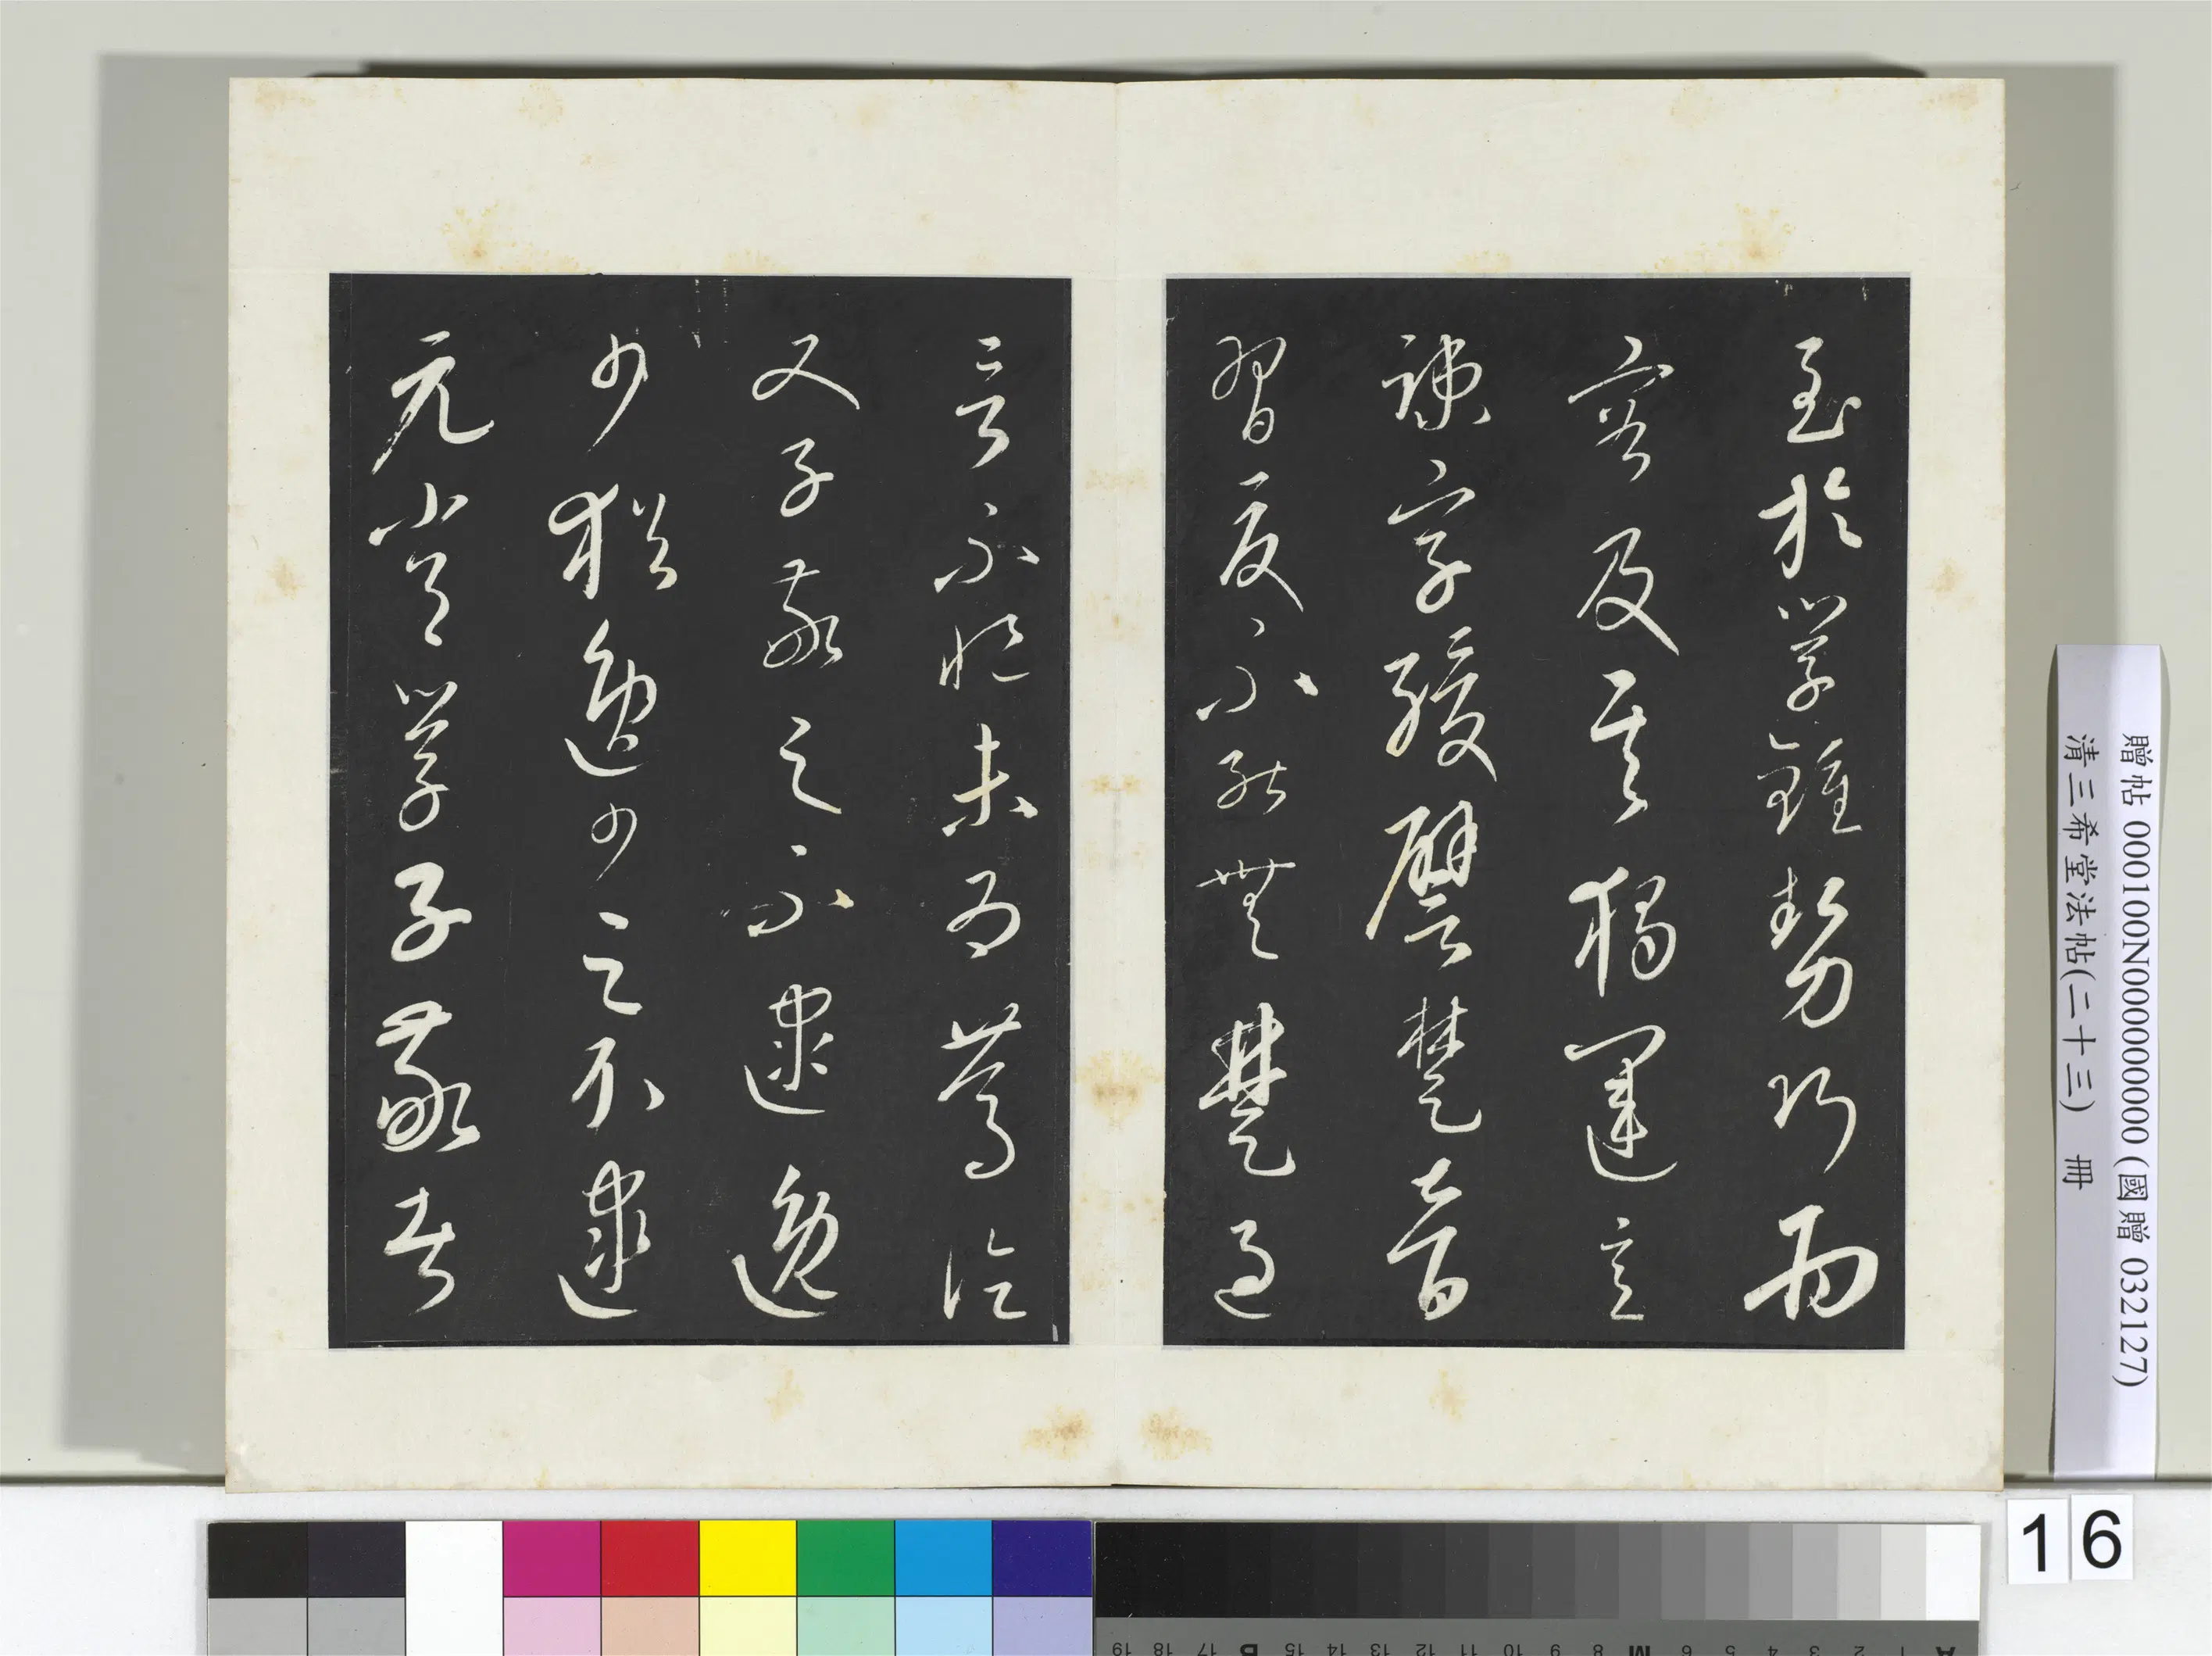 至於學鍾勢巧而
密及其獨運意
疎字緩譬楚音
習夏不能無楚過
言不悒未為篤論
又子敬之不逮逸
少猶逸少之不逮
元常學子敬者
贈帖 000100N000000000 (國贈 032127)
清三希堂法帖(二十三) 冊
16
A 1 2 3 4 5 6 M 8 9 10 11 12 13 14 15 B 17 18 19